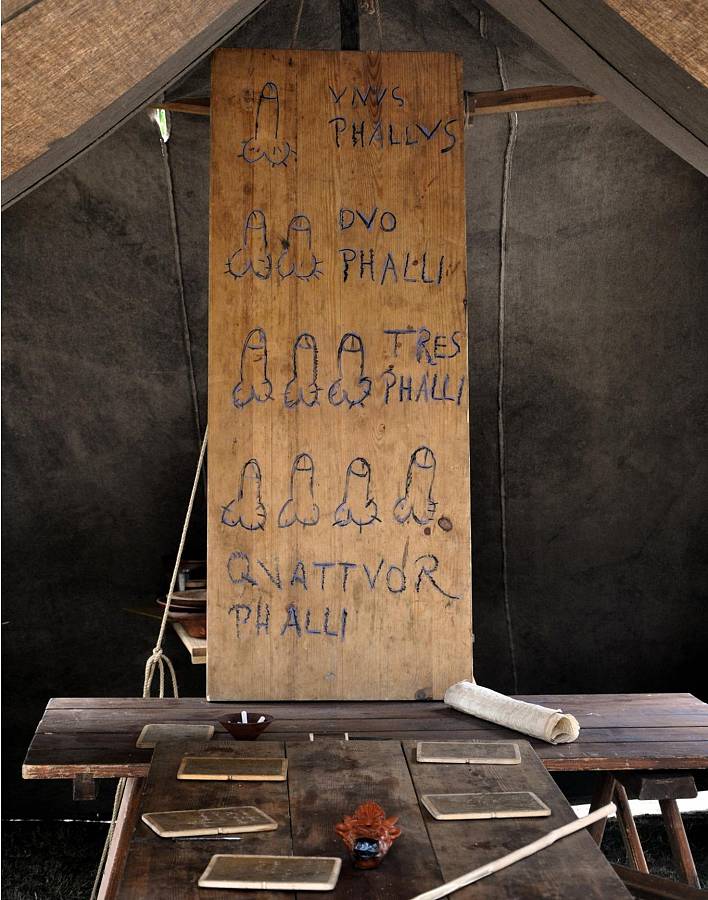 VNVS
PHALLVS
DVO
PHALLI
TRES
PHALLI
QVATTVOR
PHALLI